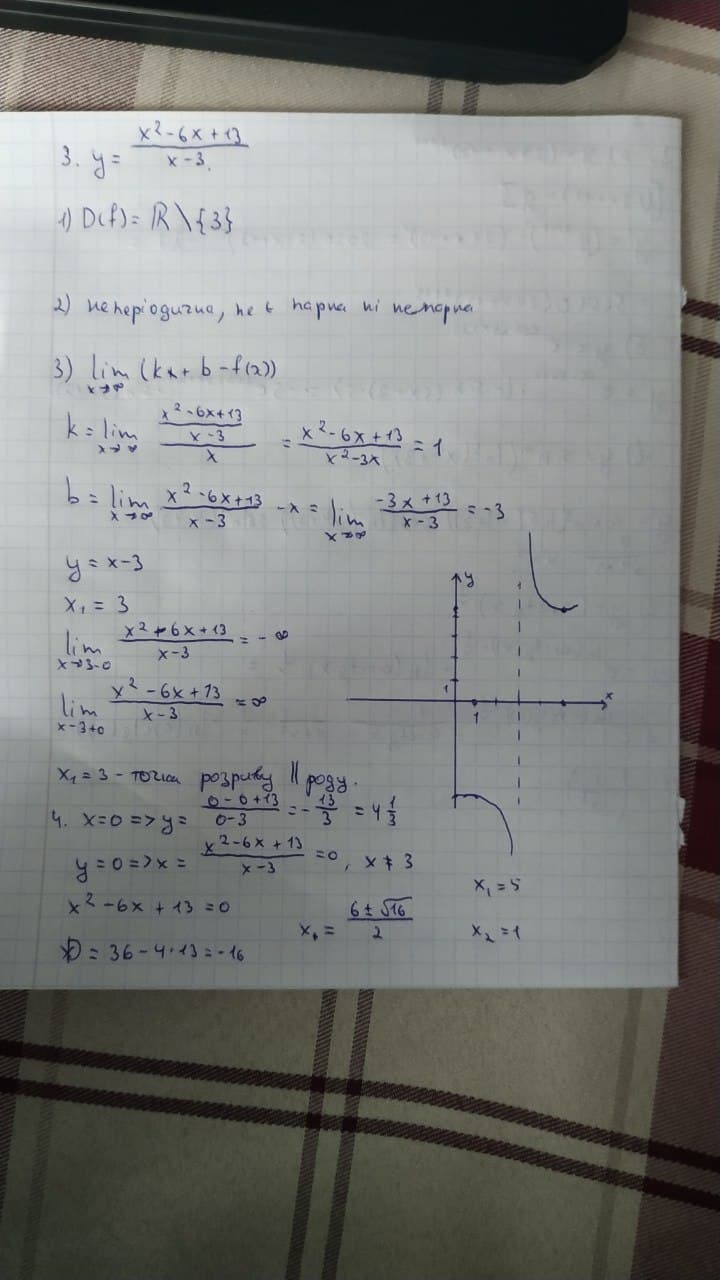 3. y = (x²-6x+13)/(x-3).
1) D(f) = ℝ \ {3}
2) неперіодична, не є парна ні непарна
3) lim x→∞ (kx + b - f(x))
k = lim x→∞ ((x²-6x+13)/(x-3))/x = (x²-6x+13)/(x²-3x) = 1
b = lim x→∞ (x²-6x+13)/(x-3) - x = lim x→∞ (-3x+13)/(x-3) = -3
y = x-3
x₁ = 3
lim x→3-0 (x²-6x+13)/(x-3) = -∞
lim x-3+0 (x²-6x+13)/(x-3) = ∞
y
1
x
1
x₁=3 - точка розриву II роду.
4. x=0 => y = (0-0+13)/(0-3) = -13/3 = 4 1/3
y=0 => x = (x²-6x+13)/(x-3) = 0, x ≠ 3
x²-6x+13=0
D = 36-4·13=-16
x, = (6±√16)/2
x₁=5
x₂=1